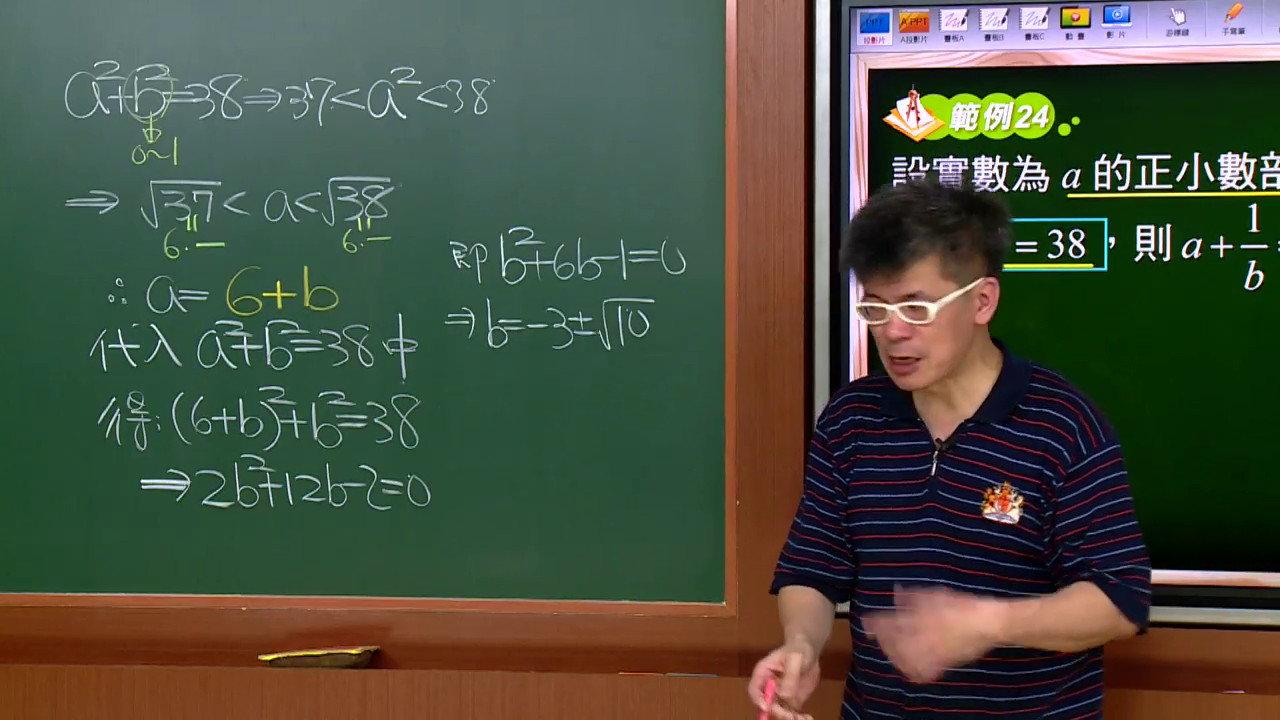 a²+b²=38⇒37<a²<38
0~1
⇒ √37 < a < √38
6.— 6.—
∴ a = 6+b
代入 a²+b²=38中
得:(6+b)²+b²=38
⇒2b²+12b-2=0
即 b²+6b-1=0
⇒b=-3±√10
PPT A-PPT
投影片 A投影片 畫板A 畫板B 畫板C 動畫 影片 游標鍵 手寫筆
範例24
設實數為 a 的正小數部
= 38,則 a + 1/b